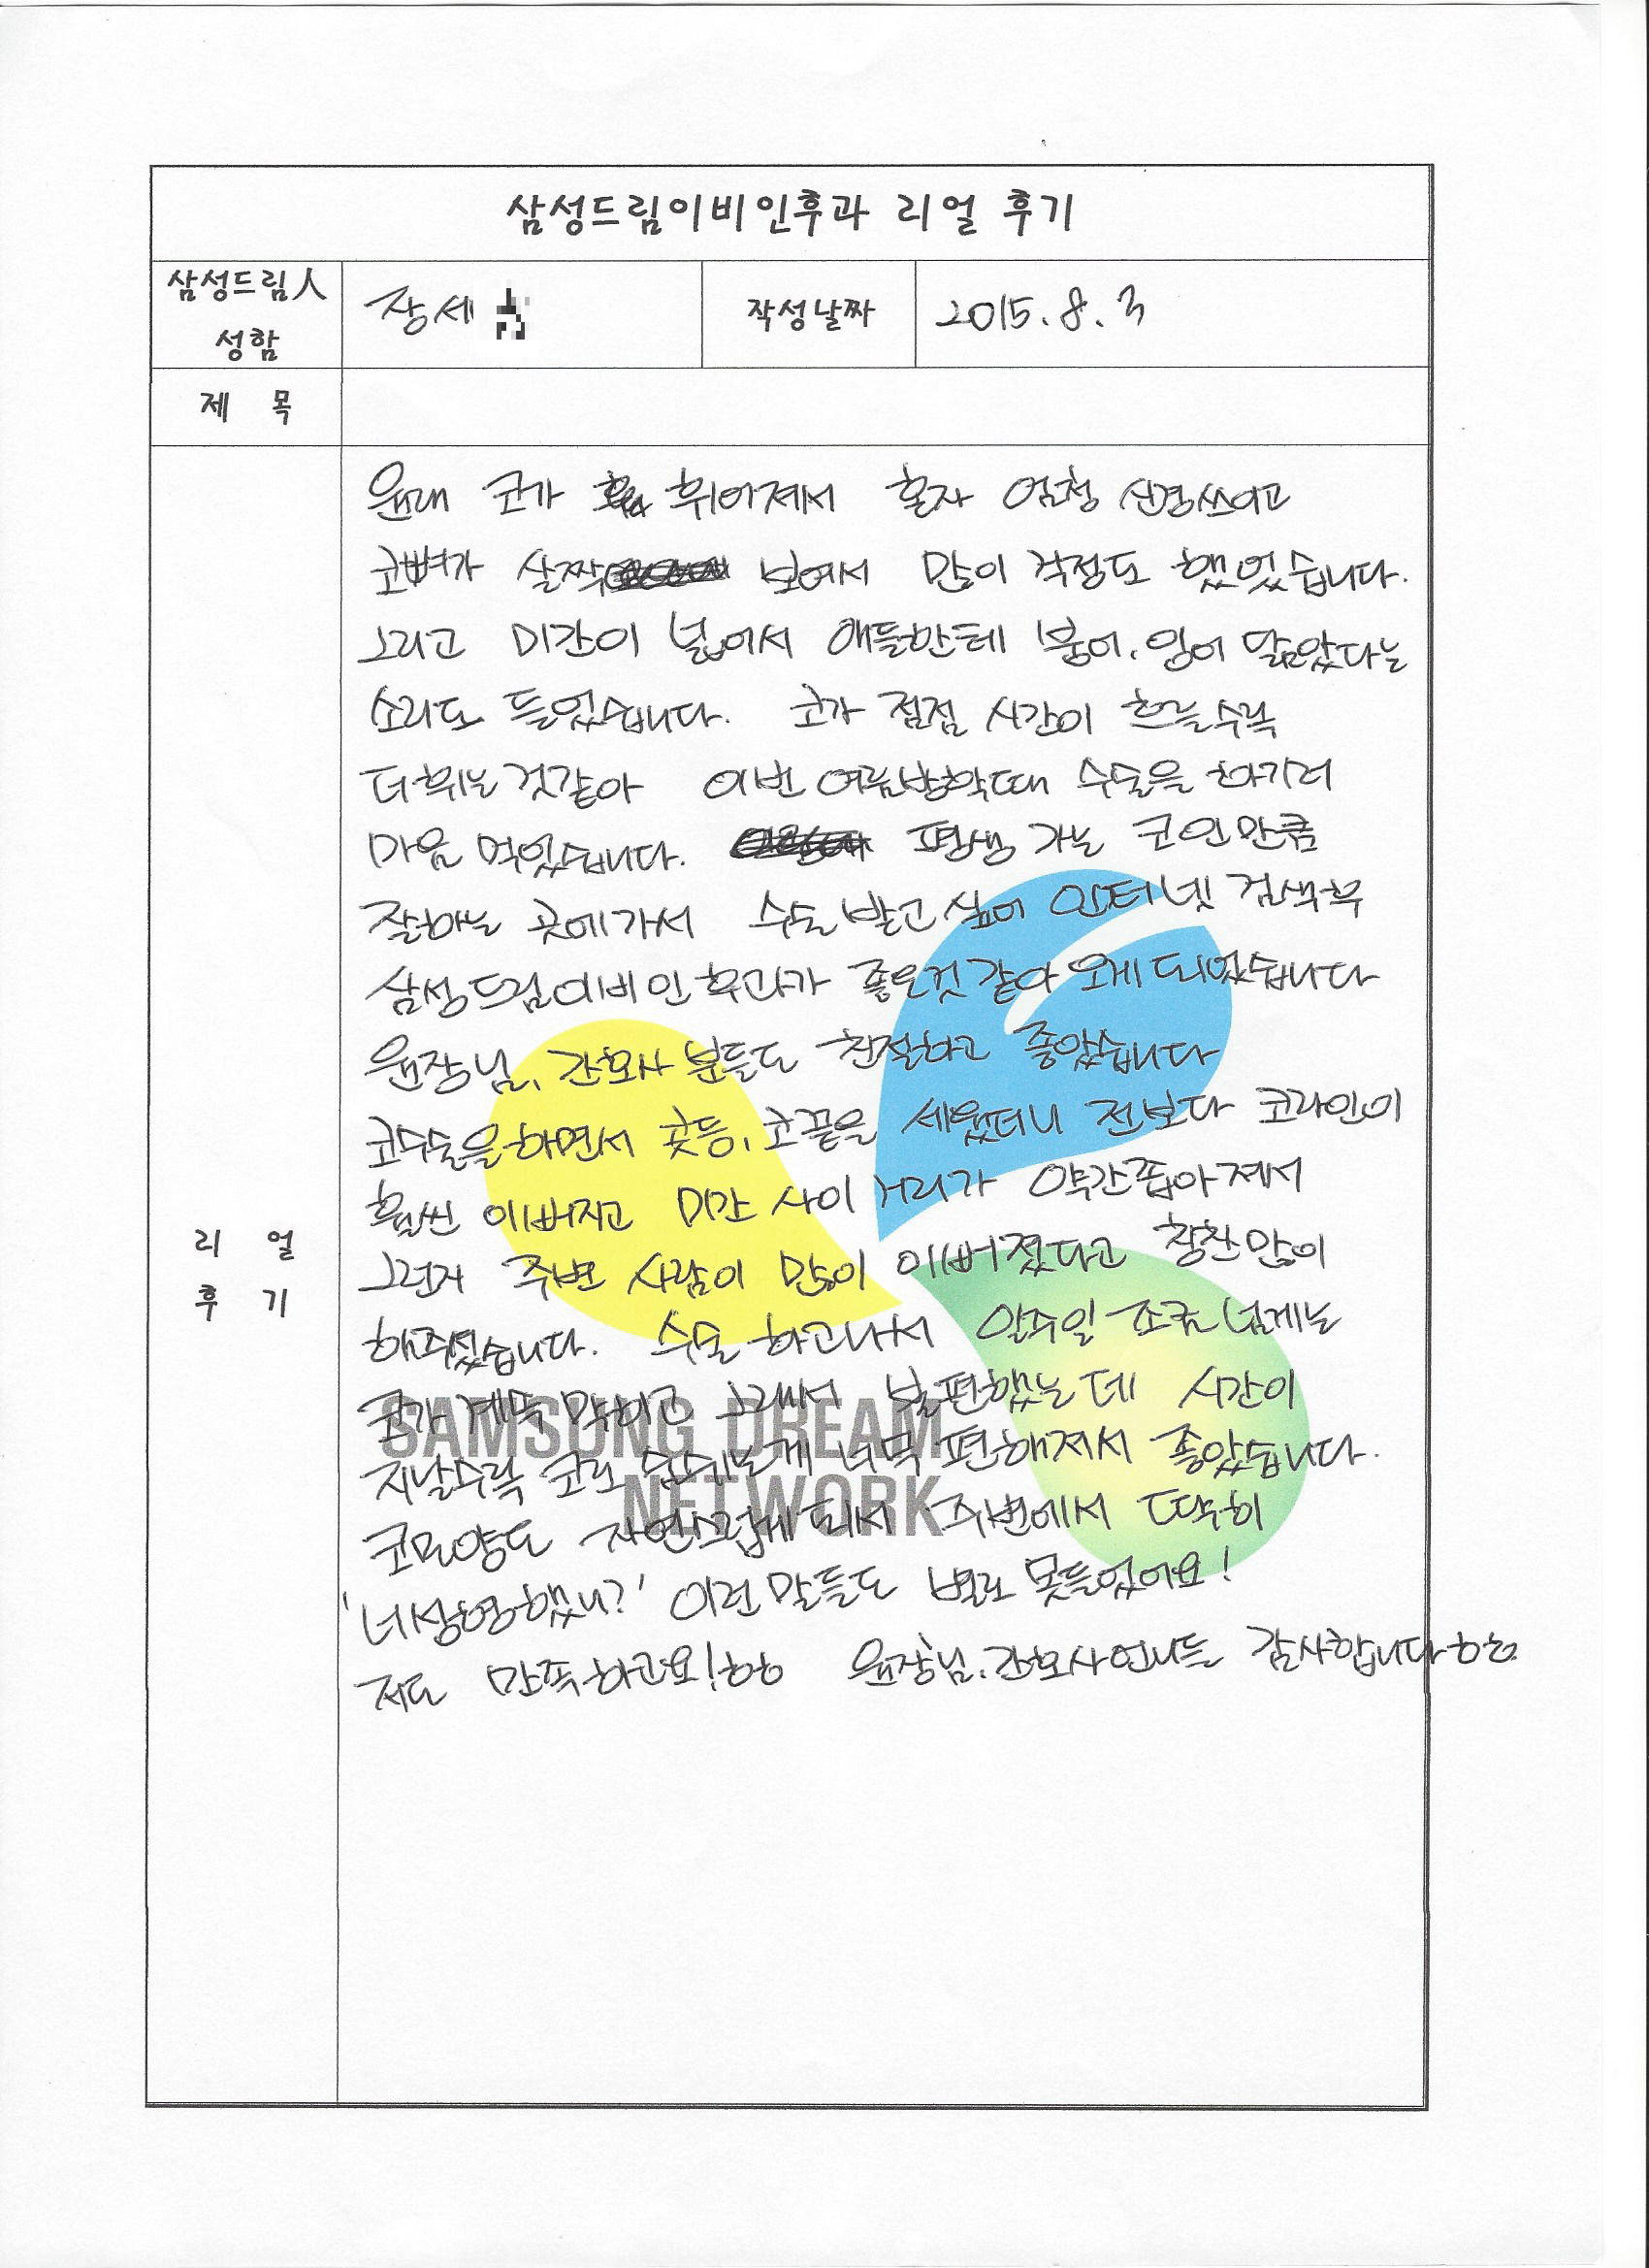 삼성드림이비인후과 리얼 후기
삼성드림人
성함
장세
작성날짜
2015. 8. 3
제 목
원래 코가 휘어져서 혼자 엄청 신경쓰이고
코뼈가 살짝 보여서 많이 걱정도 했었습니다.
그리고 미간이 넓어서 애들한테 붕어, 잉어 닮았다는
소리도 들었습니다. 코가 점점 시간이 흐를수록
더휘는 것같아 이번 여름방학때 수술을 하기러
마음 먹었습니다. 평생 가는 코인만큼
잘하는 곳에가서 수술 받고 싶어 인터넷 검색후
삼성드림이비인후과가 좋은것 같아 오게되었습니다
원장님, 간호사 분들도 친절하고 좋았습니다
코수술을하면서 콧등, 코끝을 세웠더니 전보다 코라인이
훨씬 이뻐지고 미간 사이 거리가 약간좁아져서
그런지 주변 사람이 많이 이뻐졌다고 칭찬많이
해주셨습니다. 수술 하고나서 일주일 조금 넘게는
코가 계속 막히고 그래서 불편했는데 시간이
지날수록 코로 숨쉬는게 너무 편해져서 좋았습니다.
코모양도 자연스럽게 되서 주변에서 딱히
'너성형했니?' 이런말들도 별로 못들었어요!
저도 만족하고요!ㅎㅎ 원장님, 간호사언니들 감사합니다ㅎㅎ
리 얼
후 기
SAMSUNG DREAM
NETWORK